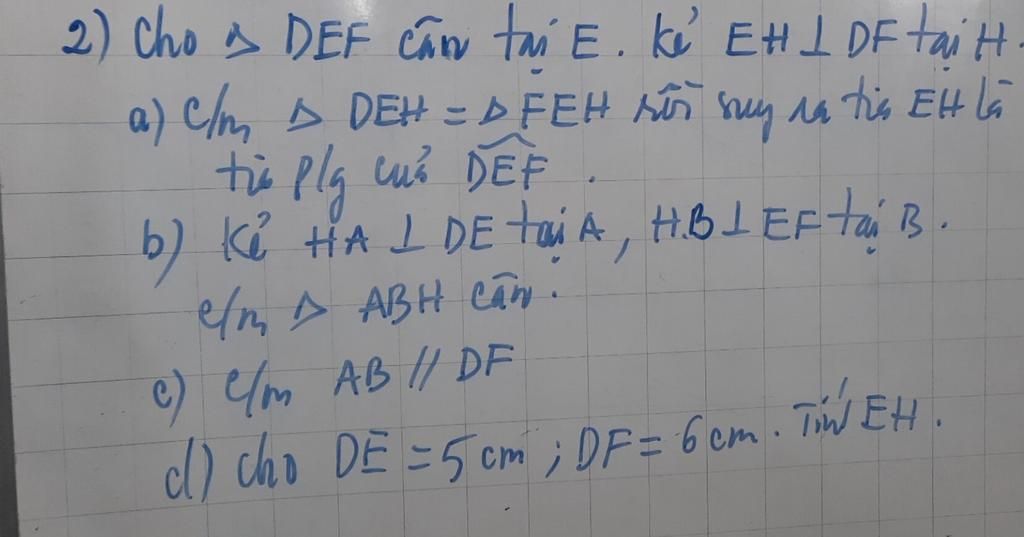 2) Cho △ DEF cân tại E. Kẻ EH ⊥ DF tại H.
a) C/m △ DEH = △ FEH rồi suy ra tia EH là
tia p/g của DEF.
b) Kẻ HA ⊥ DE tại A, HB ⊥ EF tại B.
c/m △ ABH cân.
c) c/m AB // DF
d) Cho DE = 5 cm ; DF = 6 cm. Tính EH.